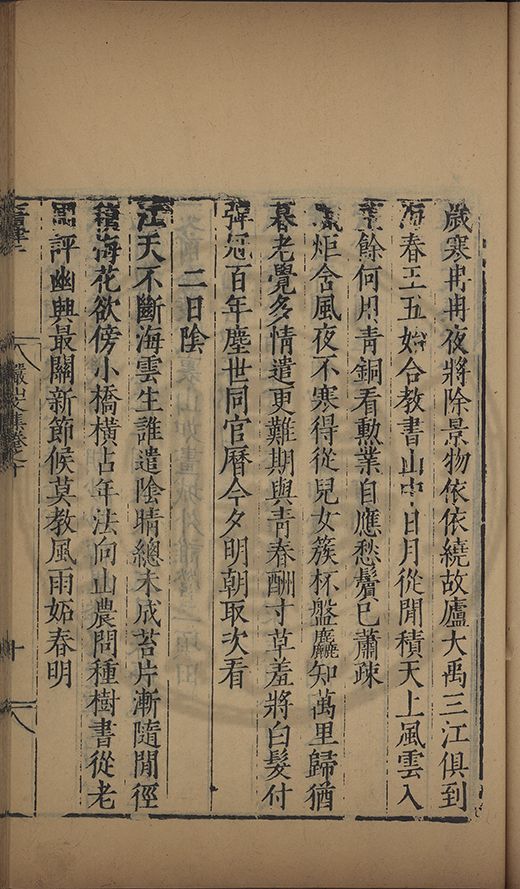 歲寒冉冉夜將除景物依依繞故廬大禹三江俱到
海春王五始合教書山中日月從閒積天上風雲入
餘何用青銅看勲業自應愁鬢已蕭疎
炬含風夜不寒得從兒女簇杯盤麤知萬里歸猶
暮老覺多情遣更難期與青春酬寸草羞將白髮付
彈冠百年塵世同官曆今夕明朝取次看
二日陰
江天不斷海雲生誰遣陰晴總未成苔片漸隨閒徑
積海花欲傍小橋橫占年法向山農問種樹書從老
圃評幽興最關新節候莫教風雨妬春明
儼山文集卷之十
十